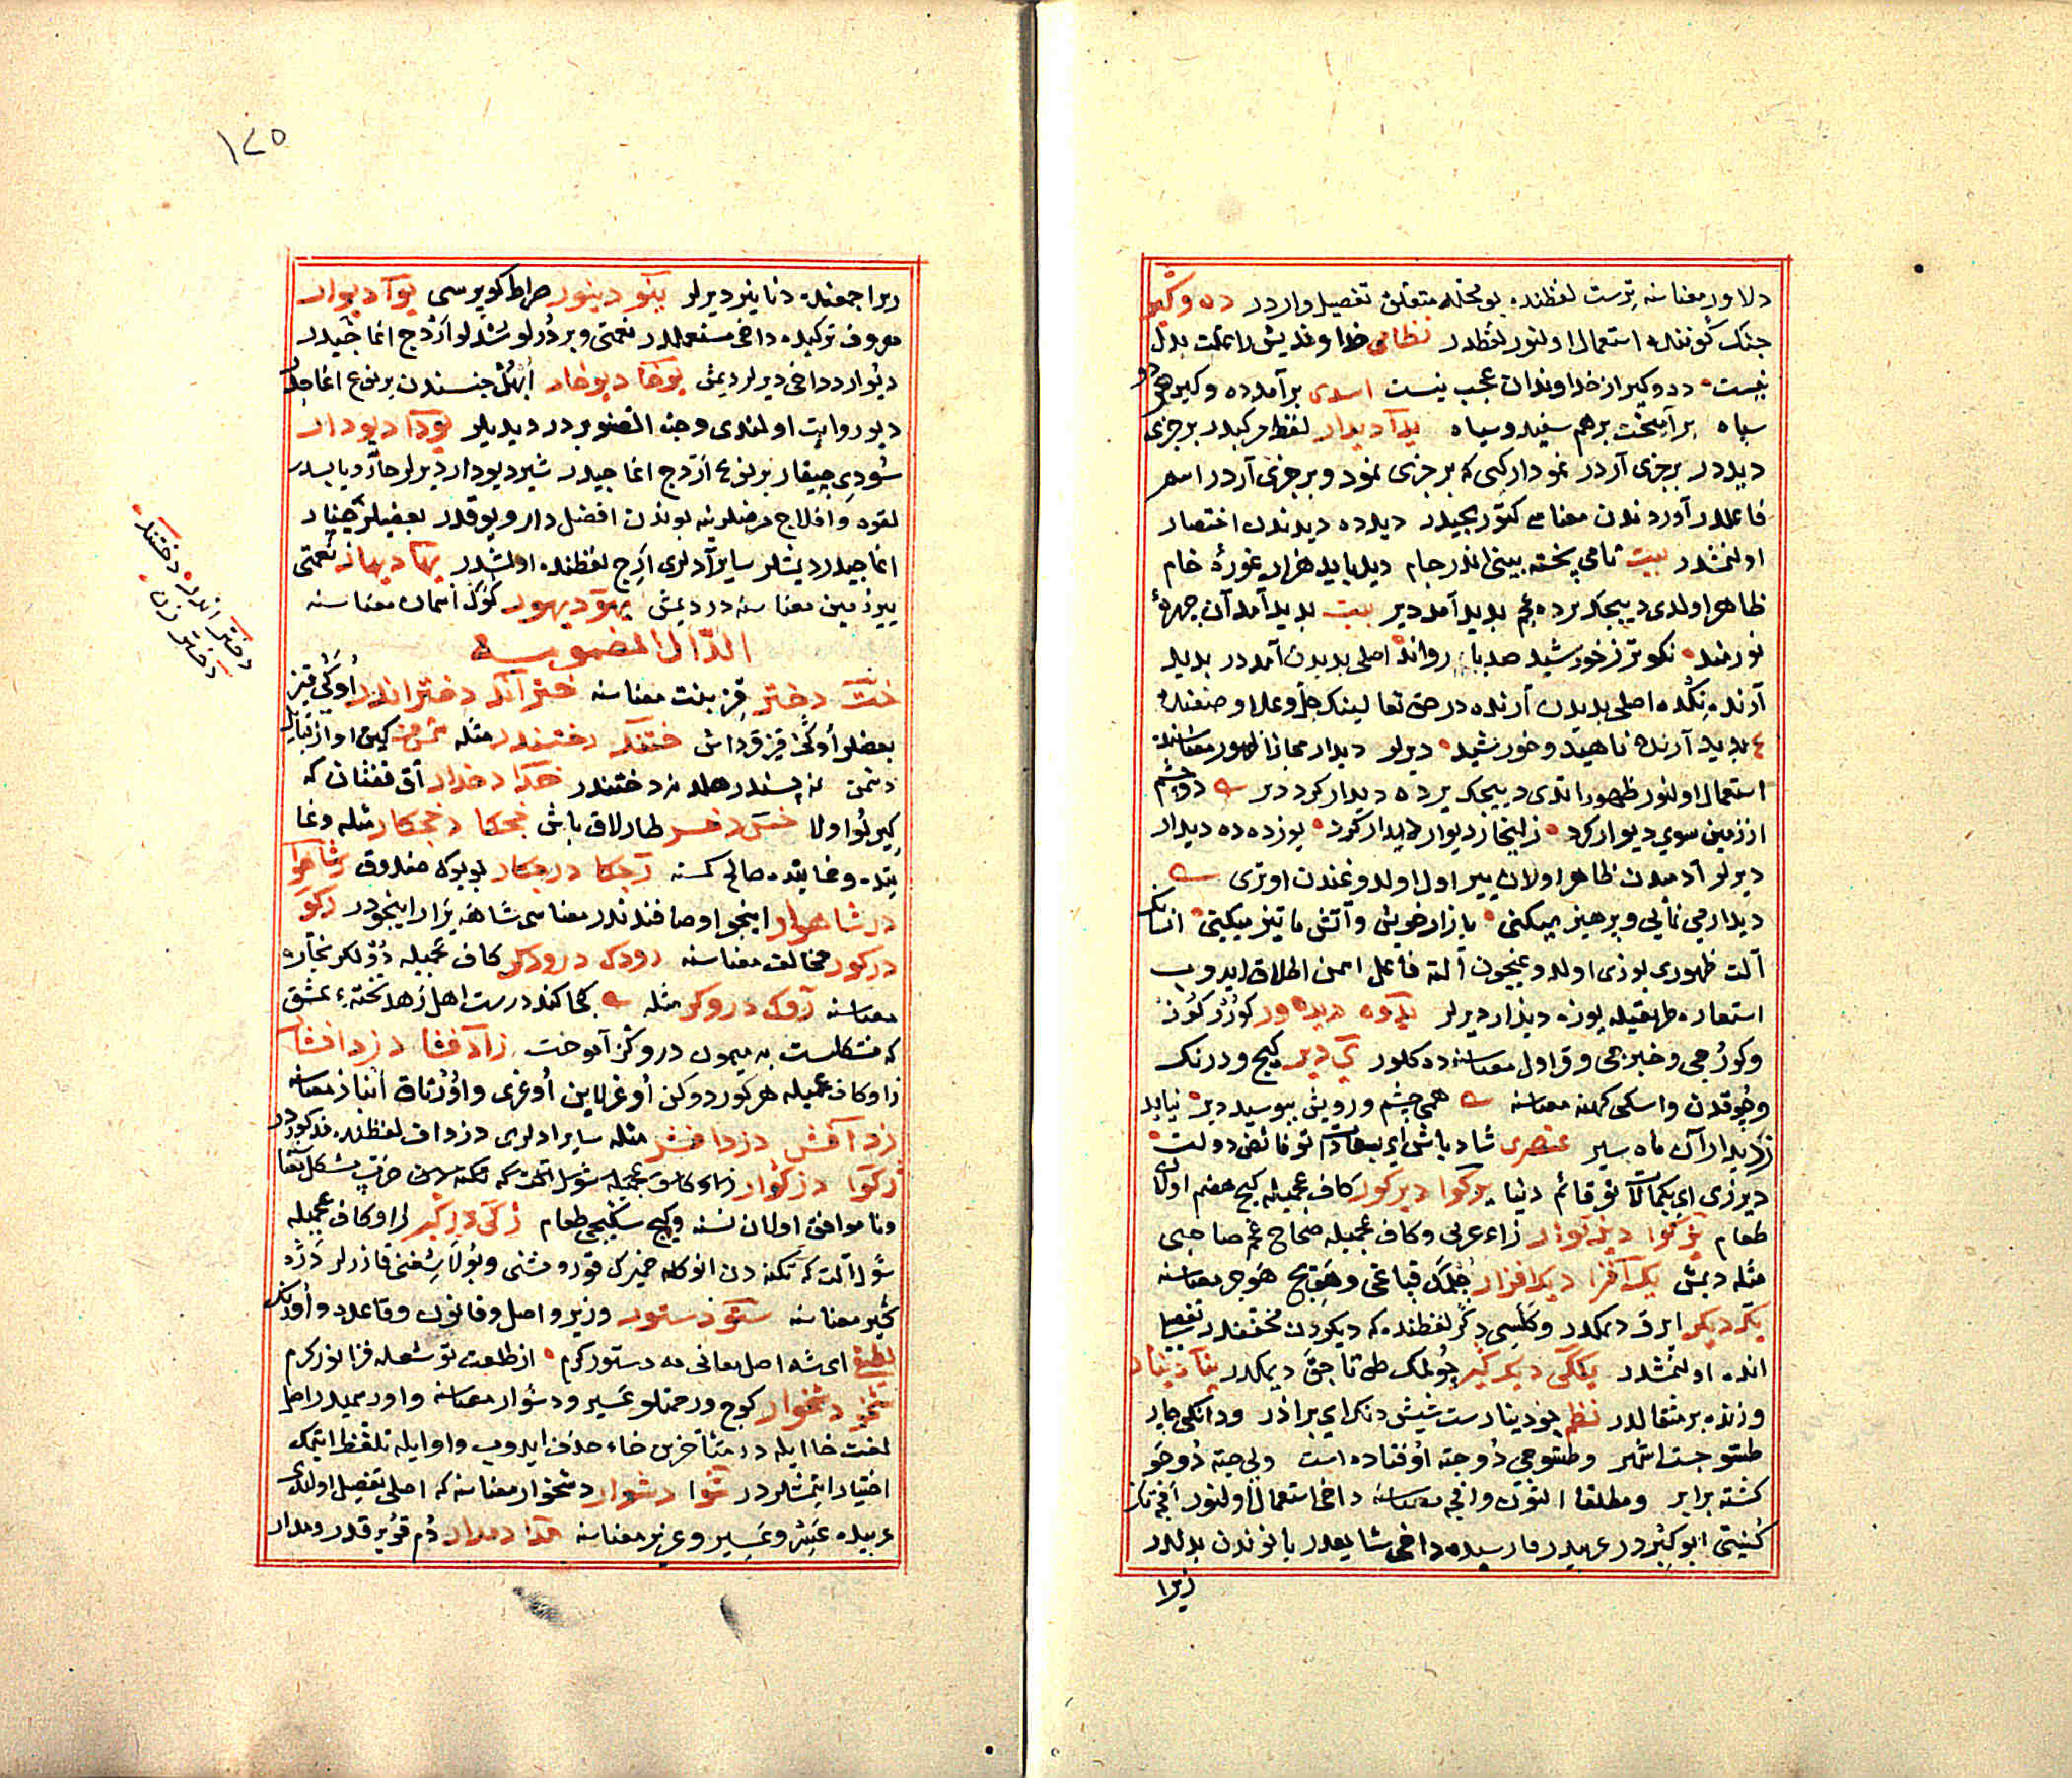 دلاور معناسنه ترست لفظنده بو محله متعلق تفصیل واردر ده وکیر
جنک کوننده استعمال اولنور لفظدر نظامی خداوندیش را تخت بدل
نیست ددوکیر از خداوندان عجب نیست اسدی برآمد ده وکیر هر دو
سیاه برآمیخت برهم سفید و سیاه یدآ دیدار لفظ مرکبدر بر جزئ
دیددر بر جزئ آردر نمودار کبی که بر جزئ نمود و بر جزئ آردر اسم
فاعلدر آوردندن معناسی کتوریجیدر دیدده دیدندن اختصار
اولنمشدر بیت تا می پخته بینی اندر جام دید باید هزار غورهٔ خام
ظاهر اولدی دییجک برده عجم بدید آمد دیر بیت بدید آمد آن چهرهٔ
نورمند نکوتر ز خورشید صد بار رواند اصلی بدیدن آمددر بدید
آرنده نکده اصلی بدیدن آرنده در حق تعالینک جل وعلا وصفنده
ع بدید آرنده ناهید و خورشید دیرلر دیدار مجازا ظهور معناسنه
استعمال اولنور ظهور ایتدی دییجک یرده دیدار کرد دیر دو چشم
از زمین سوی دیوار کرد زلیخا ز دیوار دیدار کرد یوزده ده دیدار
دیرلر آدمدن ظاهر اولان ییر اول اولدوغندن اوتری
دیدار می نمایی و پرهیز میکنی بازار خویش و آتش ما تیز میکنی انسانک
آلت ظهوری یوزی اولدوغیچون آلته فاعل اسمن اطلاق ایدوب
استعاره طریقیله یوزه دیدار دیرلر یدوه دیده ور کوزر کوز
وکورجی و خبرجی و قراول معناسنه ده کلور ی دیر کیج و درنک
وچوقدن و اسکی کهنه معناسنه همی چشم و رویش ببوسید دیر نیابد
ز دیدار آن ماه سیر عنصری شاد باش ای بسعادت تو قائم دولت
دیرزی ای بکمالات تو قائم دنیا یرکوا دیرکور کاف عجمیله کیج هضم اولان
طعام یزکوا دیزکوار زاء عربی و کاف عجمیله صحاح عجم صاحبی
مثله دیمش یک افزا دیک افزار چلمک قباغی و هویج هوجر معناسنه
یکر دیکر ایرق دیمکدر وکلیسی دکر لفظنده که دیکردن مخففدر تفصیل
انده اولنمشدر یککی دیک کیر چولمک طوتاجق دیمکدر ینا دینار
وزنده بر مثقالدر نظم بود دینار ست شیش دنک ای برادر ودانکی چار
طستوجست اشهر و طستوجی دو حبه اوفتاده است ولی حبه دوجو
کشته برابر ومطلقا التون واقچه معناسنه داخی استعمال اولنور اقچه نک
کنیتی ابو کثیر در عربیدر فارسیده داخی شایعدر یا نوندن بدلدر
زیرا
١٢٥
زیرا جمعنده دنانیر دیرلر ینو دینور صراط کوپریسی یوآ دیوار
معروف ترکیده داخی مستعملدر نعمتی و بر درلو سندلو اردج اغاجیدر
دیوار دداخی دیرلر دیمش یوخا دیوخار ابهل جنسندن بر نوع اغاجدر
دیو روایت اولندی و جنة الصنوبر در دیدیلر یودا دیودار
سودی چیقار بر نوع اردج اغاجیدر شیر دیودار دیرلر حار و یابسدر
لقوه و افلاج مرضلرینه بوندن افضل دارو یوقدر بعضیلر چنار
اغاجیدر دیمشلر سایر آدلری ارج لفظنده اولمشدر یها دیهار نعمتی
ییر زمین معناسنه در دیمش یهو دیهور کوک آسمان معناسنه
الدّال المضمومه
خت دختر قز بنت معناسنه ختر اند دختر اندر اوکی قیز
بعضلر اوکی قیز قرداش ختند دختندر مثله
دشمن نه پسندر هلد نه دختندر خدا دخدار آق قفتان که
کیر لو اولا خس دخس طارلاق باش خجکا دخجکار مثله وغا
یتده وغا یتده صالح کمسنه رجکا درجکار بویوک صندوق رشاهوا
در شاهوار اینجو اوصافندندر معناسی شاهه یرار اینجودر رکو
درکور مخالف معناسنه رودک درودکر کاف عجمیله دولکر نجاره
معناسنه روک دروکر مثله کجا کند درست اهل زهد تختهٔ عشق
که مشکلست به میمون دروکری آموخت زدآ فشا دزد افشار
زا و کاف عجمیله هر کوردوکن اوغرلاین اوغری و اورتاق انباز معناسنه
زد آفش دزد افش مثله سایر ادلری دزداف لفظنده مذکوردر
زکوا دزکوار زاء کاف عجمیله شول اتت که
و نا موافق اولان نسنه و کیج سکیج طعام زکی دزکیر زا و کاف عجمیله
شول آلت که تکنه دن انوکله خمیرک قوروسنی و بولاشغنی قازرلر دزد
کیر معناسنه ستو دستور وزیر و اصل و قانون و قاعده و اورنک
لطیفی ای شه اصل معانی ده دستور کرم از طلعت تو شعله فزا نور کرم
شخو دشخوار کوج و زحمتلو عسیر و دشوار معناسنه واو رسمیدر اصل
لغت خا ایله در متأخرین خاء حذف ایدوب واو ایله تلفظ ایتمک
اختیار ایتمشلردر شوا دشوار دشخوار معناسنه که اصلی تفصیل اولندی
عربیده عسر و عسیر و عزیز معناسنه مدا دمدار دم قویرقدر ودار
دختر اندر دختندر
دختر زن